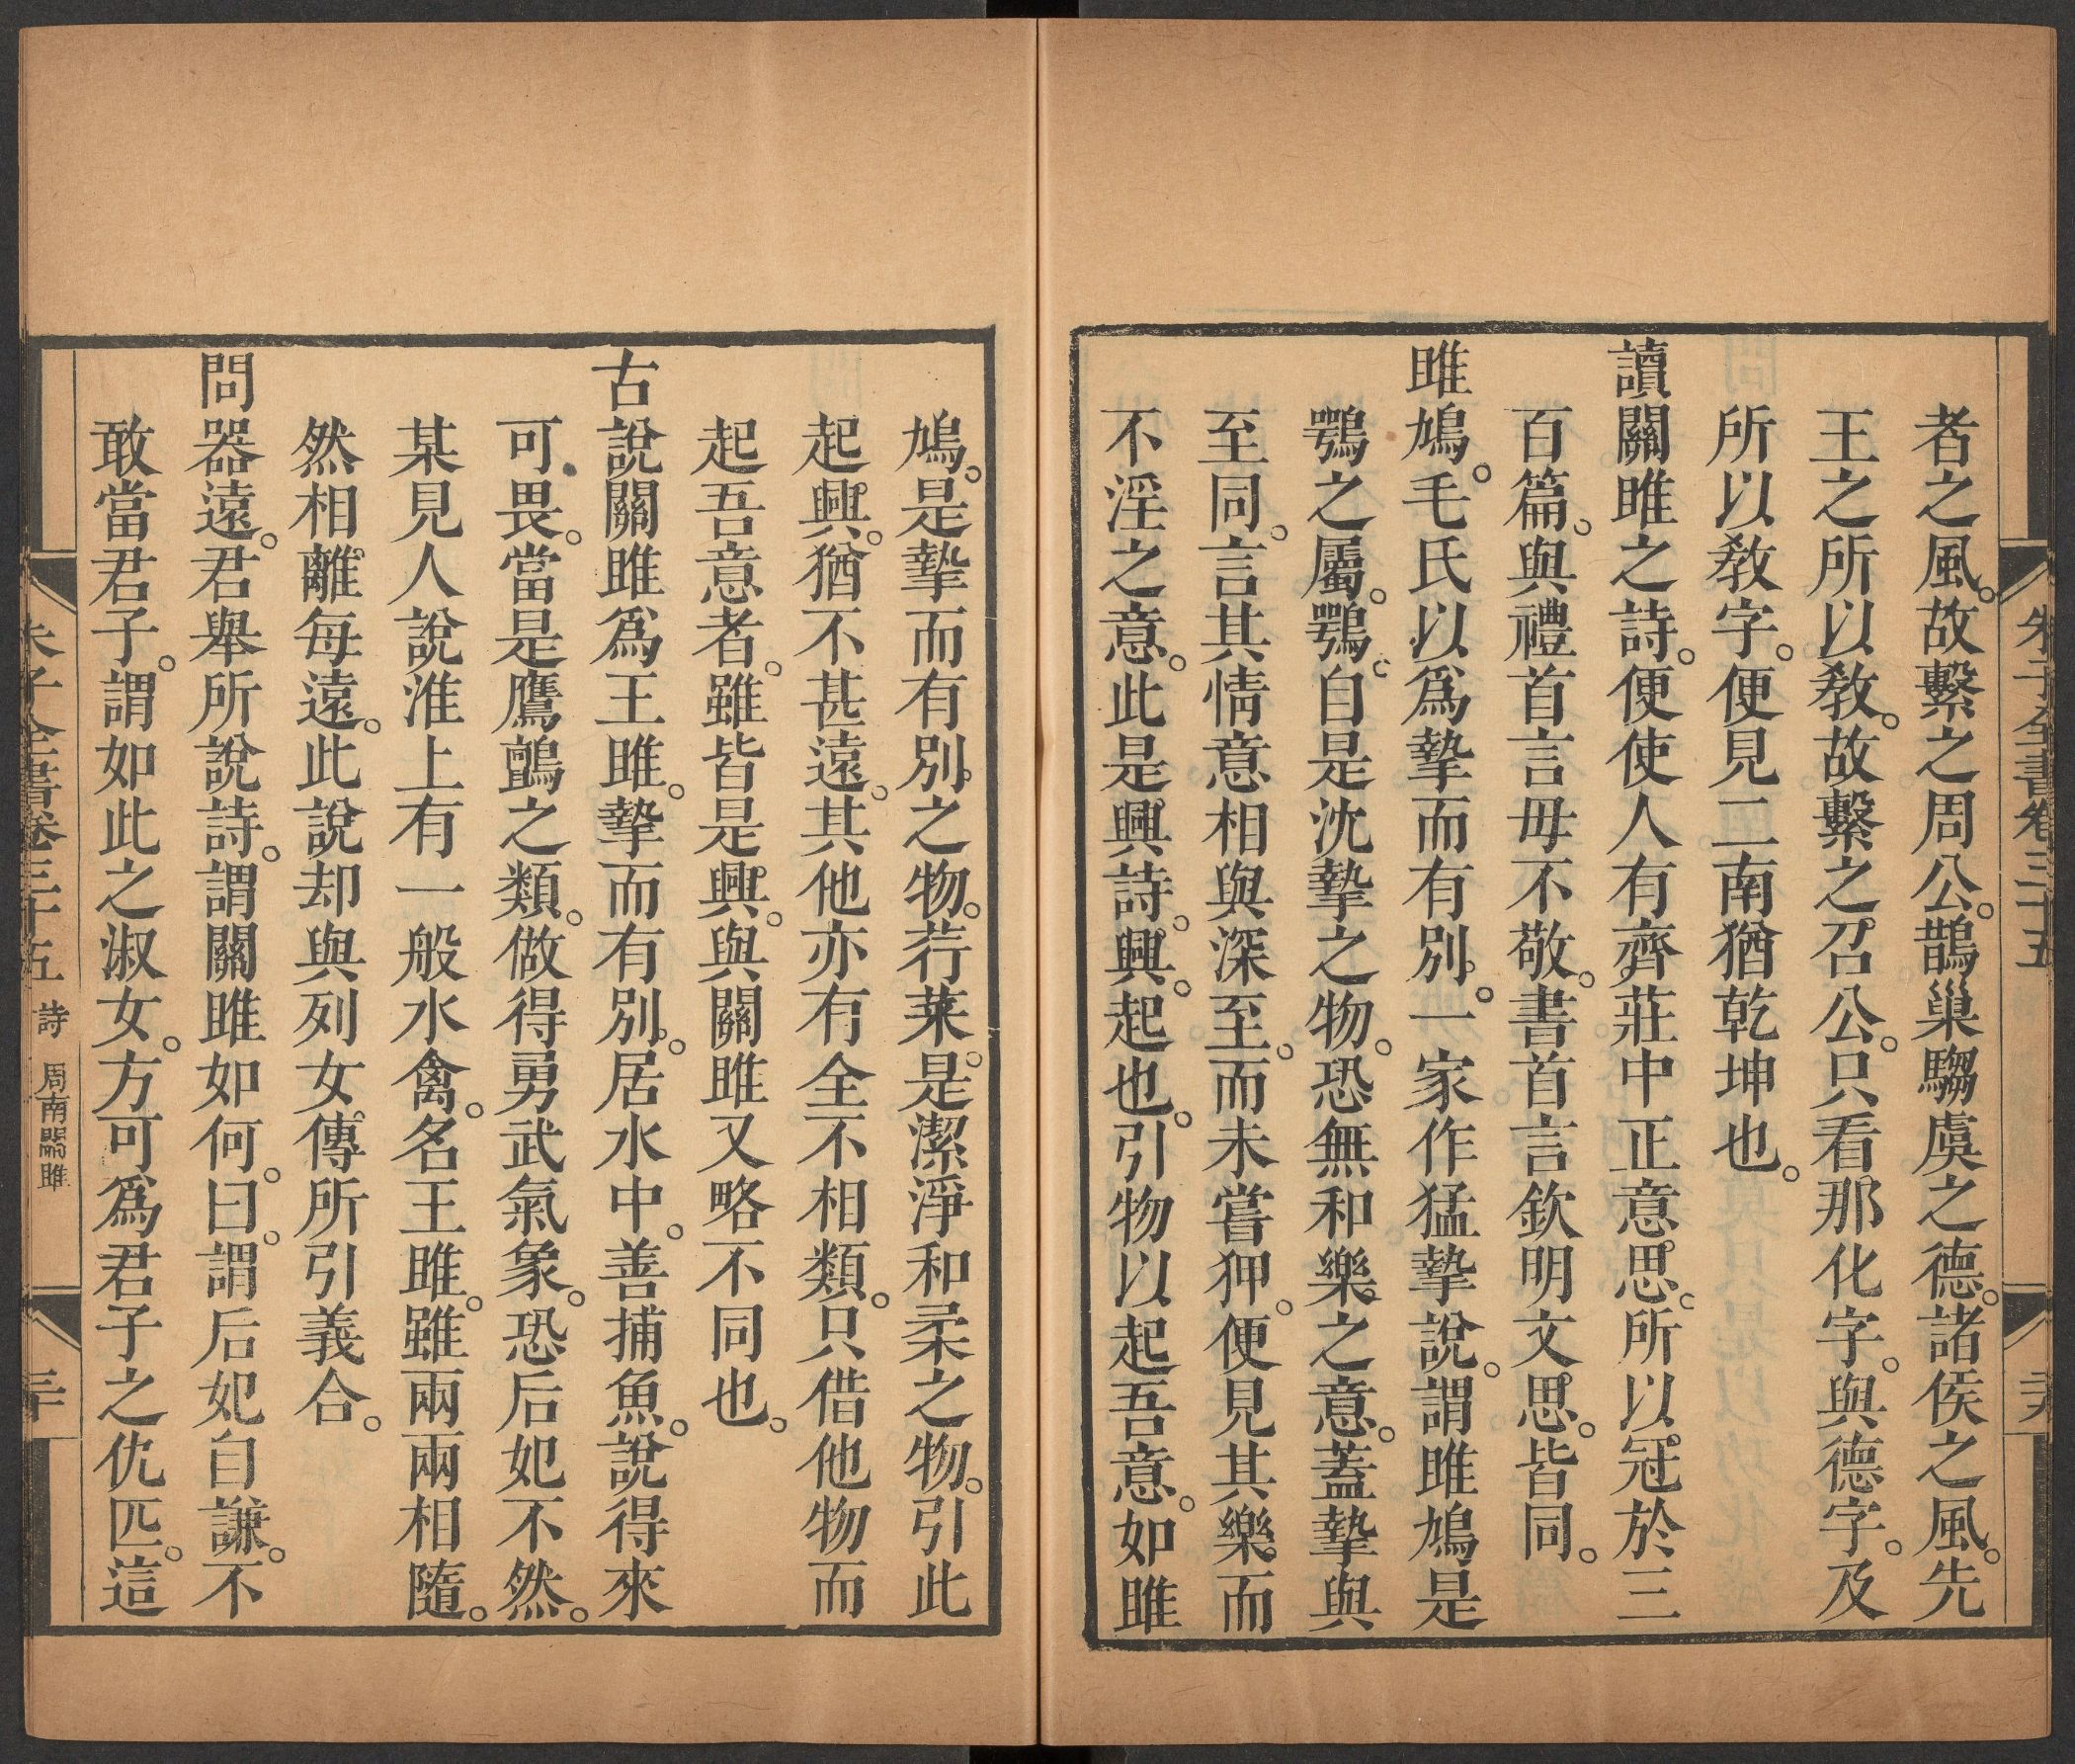 朱子全書卷三十五
者之風。故繫之周公。鵲巢騶虞之德。諸侯之風。先
王之所以敎。故繫之召公。只看那化字。與德字。及
所以敎字。便見二南猶乾坤也。
讀關雎之詩。便使人有齊莊中正意思。所以冠於三
百篇。與禮首言毋不敬。書首言欽明文思。皆同。
雎鳩。毛氏以爲摯而有別。一家作猛摯說。謂雎鳩是
鶚之屬。鶚。自是沈摯之物。恐無和樂之意。蓋摯與
至同。言其情意相與深至。而未嘗狎。便見其樂而
不淫之意。此是興詩。興。起也。引物以起吾意。如雎
鳩。是摯而有別之物。荇菜。是潔淨和柔之物。引此
起興。猶不甚遠。其他亦有全不相類。只借他物而
起吾意者。雖皆是興。與關雎又略不同也。
古說關雎爲王雎。摯而有別。居水中。善捕魚。說得來
可畏。當是鷹鸇之類。做得勇武氣象。恐后妃不然。
某見人說淮上有一般水禽。名王雎。雖兩兩相隨。
然相離每遠。此說却與列女傳所引義合。
問器遠。君舉所說詩。謂關雎如何。曰。謂后妃自謙。不
敢當君子。謂如此之淑女。方可爲君子之仇匹。這
朱子全書卷三十五 詩 周南關雎 三十